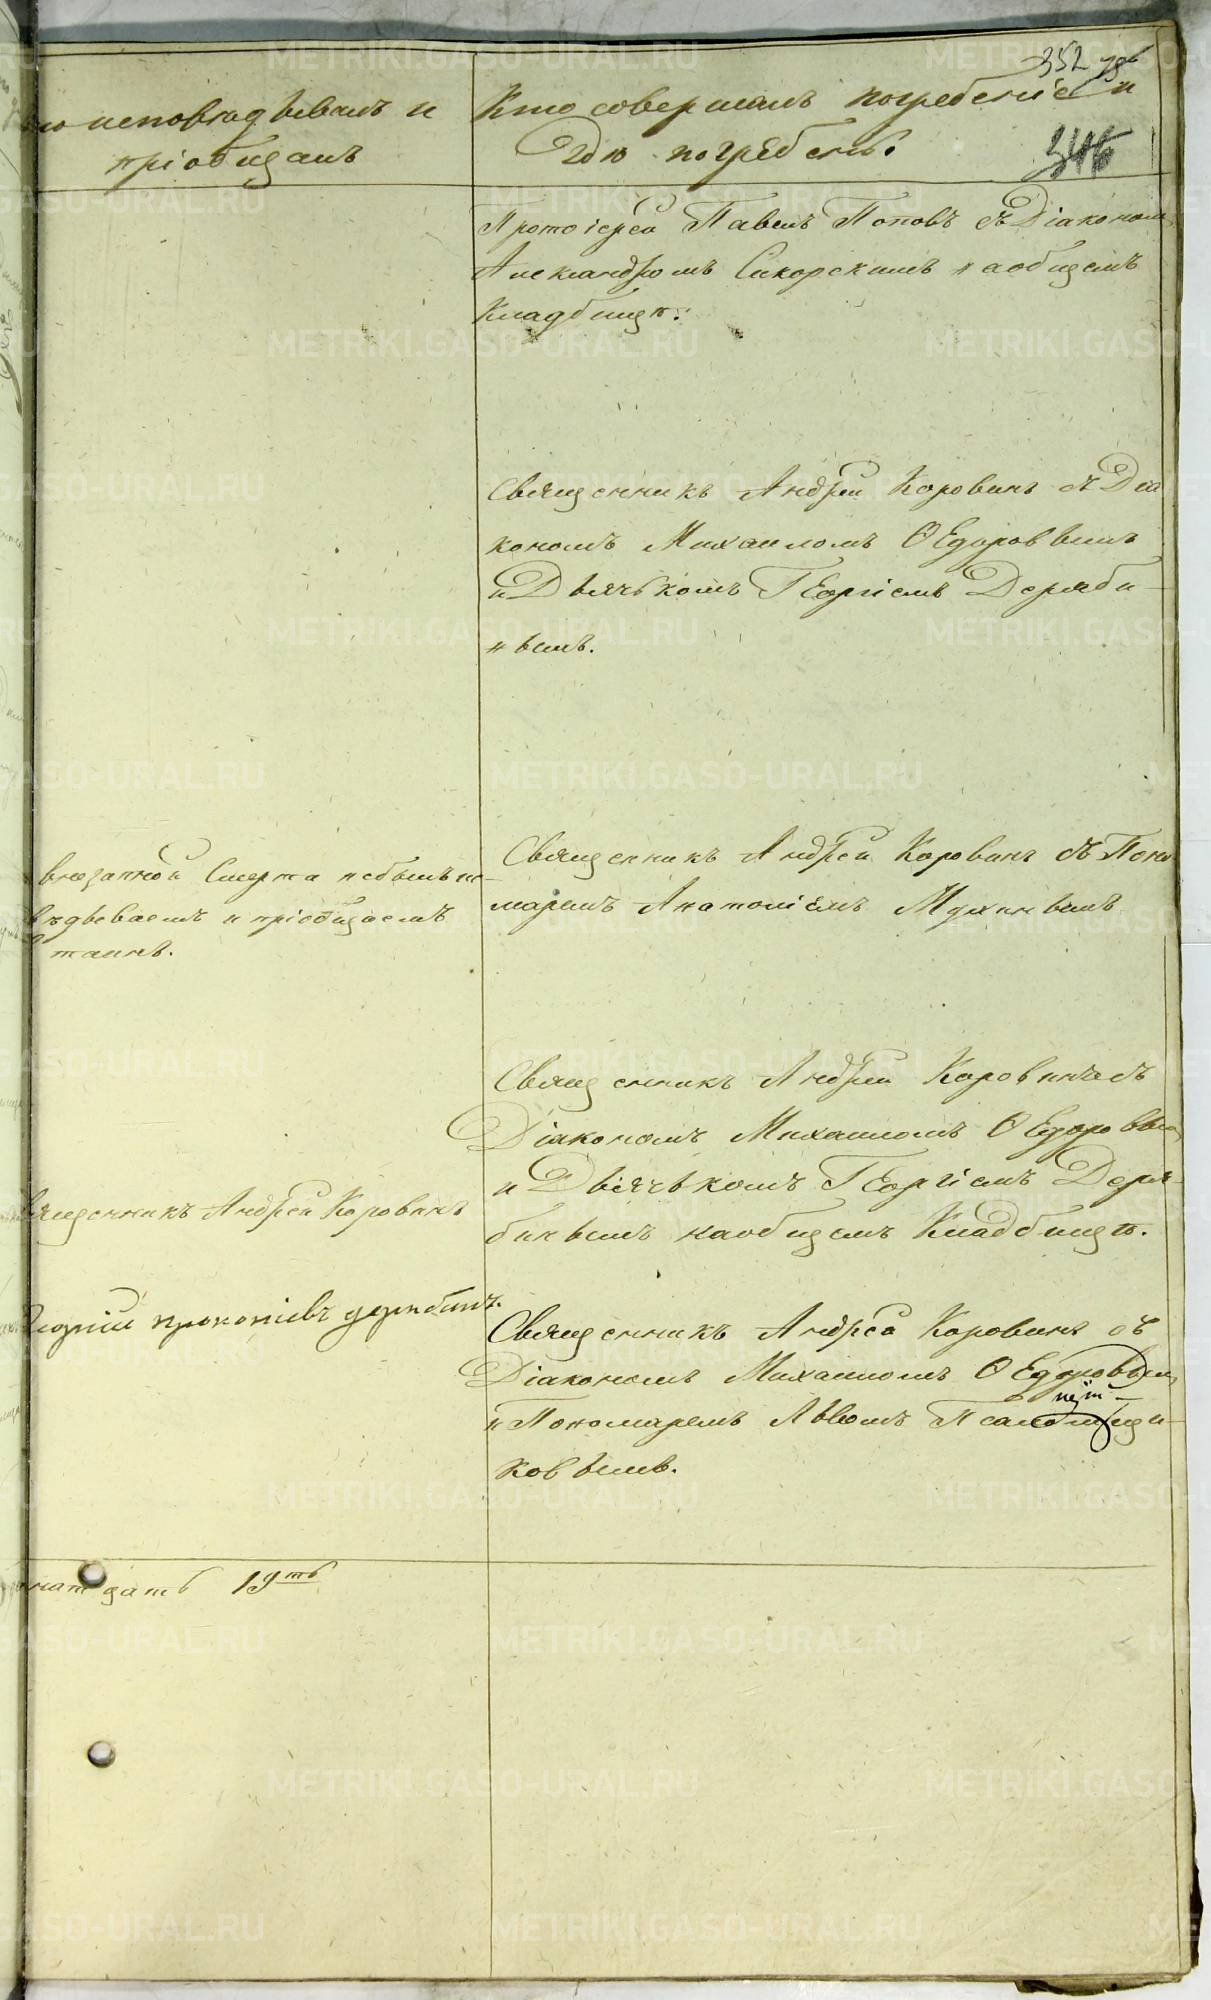 352
346
исповѣдывалъ и
пріобщалъ
Кто совершалъ погребеніе и
гдѣ погребенъ.
Протоіерей Павелъ Поповъ съ Діакономъ
Александромъ Сикорскимъ на общемъ
Кладбищѣ.
Священникъ Андрей Коровинъ съ Діа
кономъ Михаиломъ Ѳедоровымъ
и Дьячькомъ Георгіемъ Деряби-
нымъ.
внезапной Смерти небылъ ис-
вѣдываемъ и пріобщаемъ
таинъ.
Священникъ Андрей Коровинъ съ Поно
маремъ Анатоліемъ Мухинымъ
Священникъ Андрей Коровинъ съ
Діакономъ Михаиломъ Ѳедоровым
и Дьячькомъ Георгіемъ Деря-
бинымъ на общемъ Кладбищѣ.
Андрей Коровинъ
Георгій Прокопіевъ Дерябинъ.
Священникъ Андрей Коровинъ съ
Діакономъ Михаиломъ Ѳедоровым
и Пономаремъ Львомъ Псаломщи-
ковымъ.
дать 19ть
METRIKI.GASO-URAL.RU